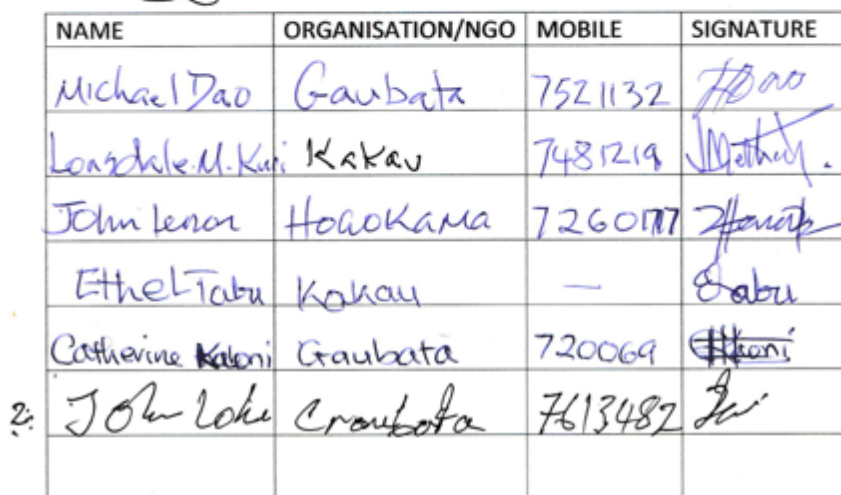 NAME ORGANISATION/NGO MOBILE SIGNATURE
Michael Dao Gaubata 7521132
Lonsdale.M.Kuri Kakau 7481219
John Lenon HOAOKAMA
Ethel Tabu Kakau — Tabu
Catherine Kaloni Gaubata 720069
2: John Loke Graubata 7613482